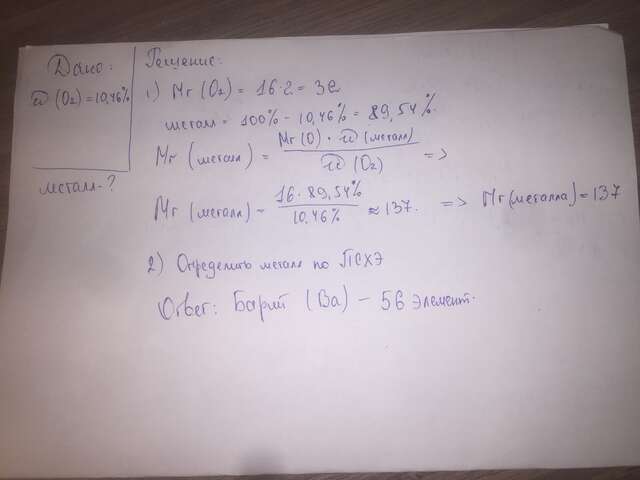 Дано:
ω (O₂) = 10,46%
металл - ?
Решение:
1) Mr (O₂) = 16·2 = 32
металл = 100% - 10,46% = 89,54%.
Mr (металл) = Mr (O) · ω (металл) / ω (O₂) =>
Mr (металл) - 16 · 89,54% / 10,46% ≈ 137. => Mr (металла) = 137
2) Определить металл по ПСХЭ
Ответ: Барий (Ba) - 56 элемент.